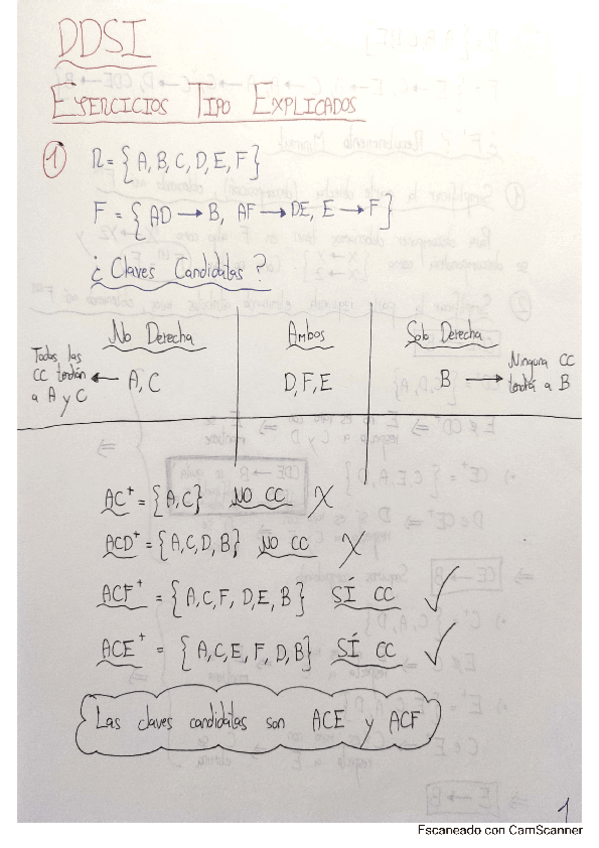 DDSI
EJERCICIOS TIPO EXPLICADOS
1 R = { A, B, C, D, E, F }
F = { AD → B, AF → DE, E → F }
¿ Claves Candidatas ?
No Derecha Ambos Solo Derecha
Todas las CC tendrán a A y C ← A, C D, F, E B → Ninguna CC tendrá a B
AC⁺ = { A, C } NO CC X
ACD⁺ = { A, C, D, B } NO CC X
ACF⁺ = { A, C, F, D, E, B } SÍ CC ✓
ACE⁺ = { A, C, E, F, D, B } SÍ CC ✓
Las claves candidatas son ACE y ACF
1
Escaneado con CamScanner